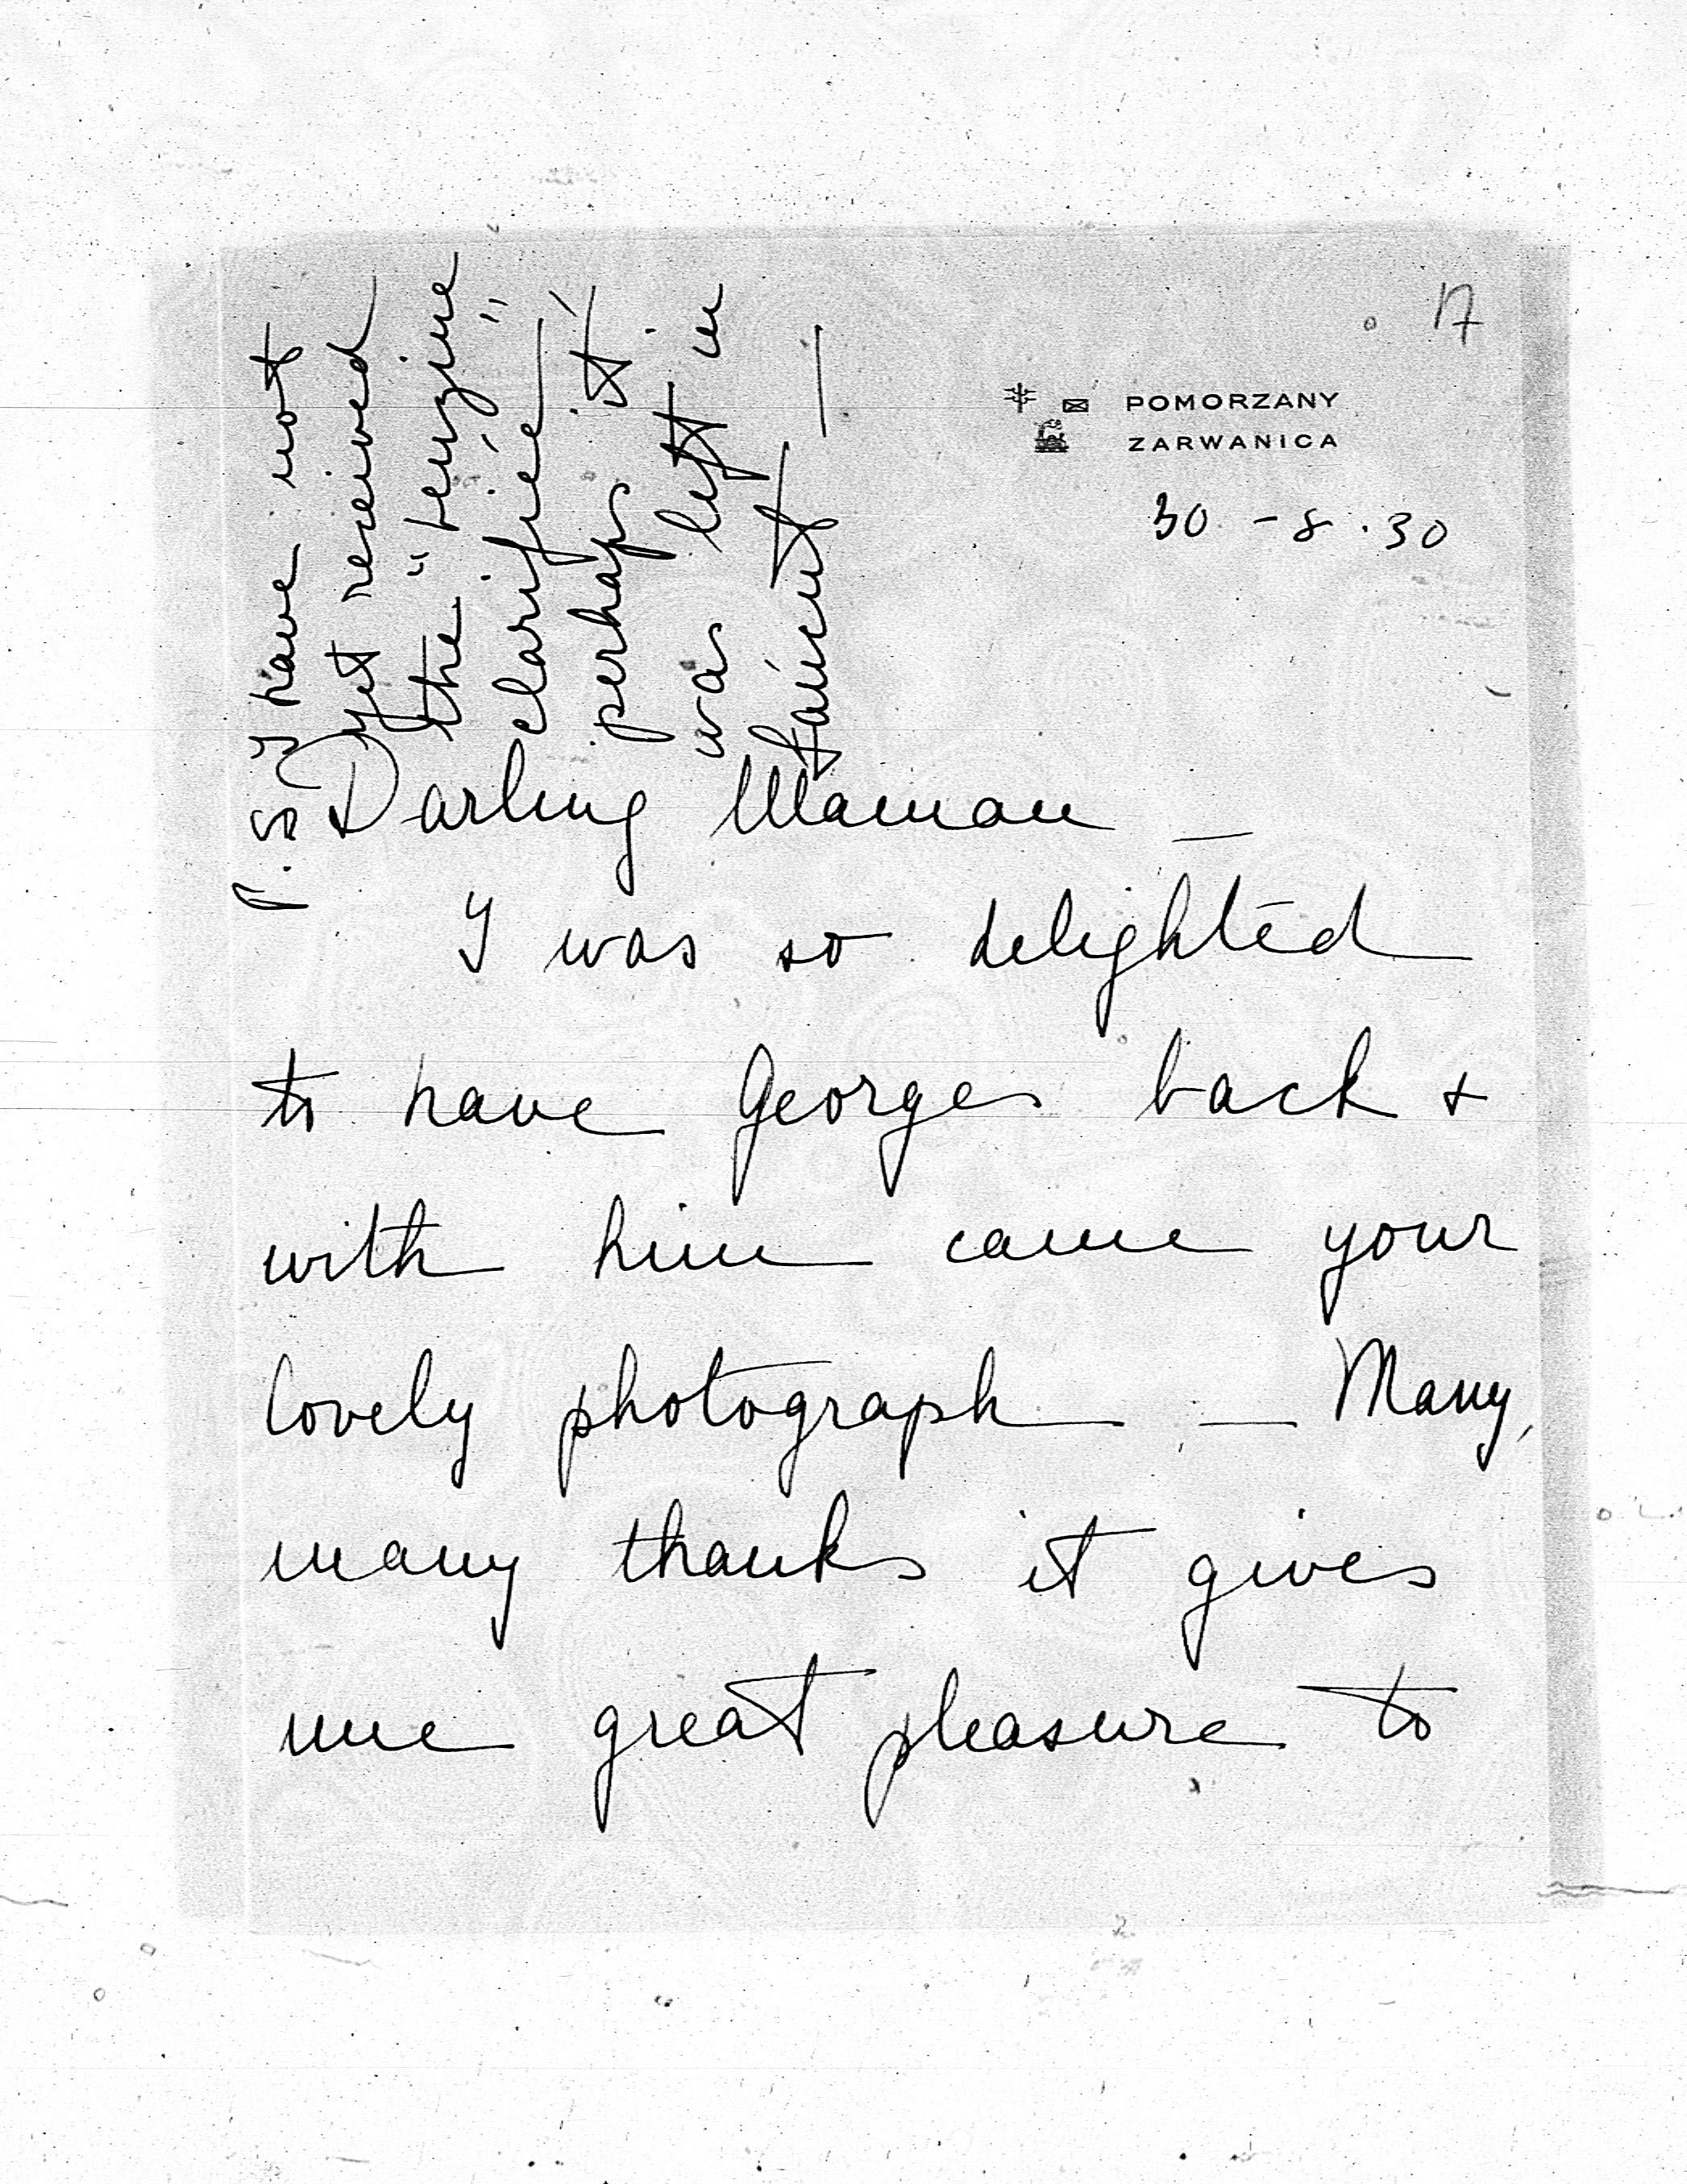 17
POMORZANY
ZARWANICA
30 - 8 . 30
Darling Maman —
I was so delighted
to have Georges back +
with him came your
lovely photograph — Many,
many thanks it gives
me great pleasure to
P.S. I have not
yet received
the "benzine
clarifiée"
perhaps it
was left in
Łańcut —